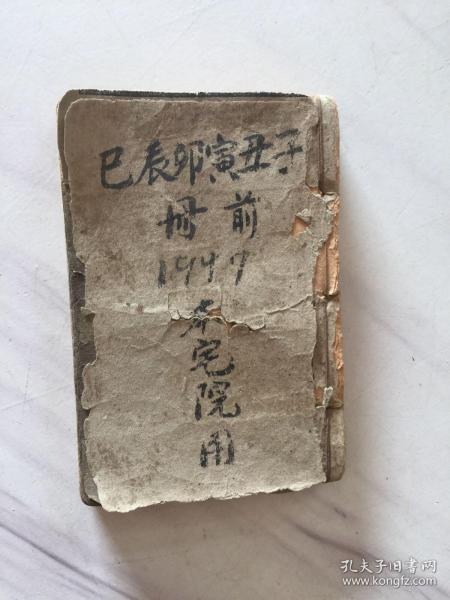 子丑寅卯辰巳
前冊
1947
本宅院用
孔夫子旧书网
www.kongfz.com